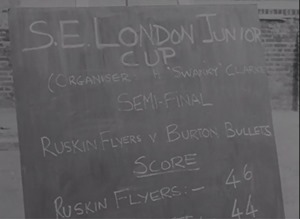 S.E. LONDON JUNIOR
CUP
(ORGANISER "SWANKY" CLARKE
SEMI-FINAL
RUSKIN FLYERS V BURTON BULLETS
SCORE
RUSKIN FLYERS:- 46
44